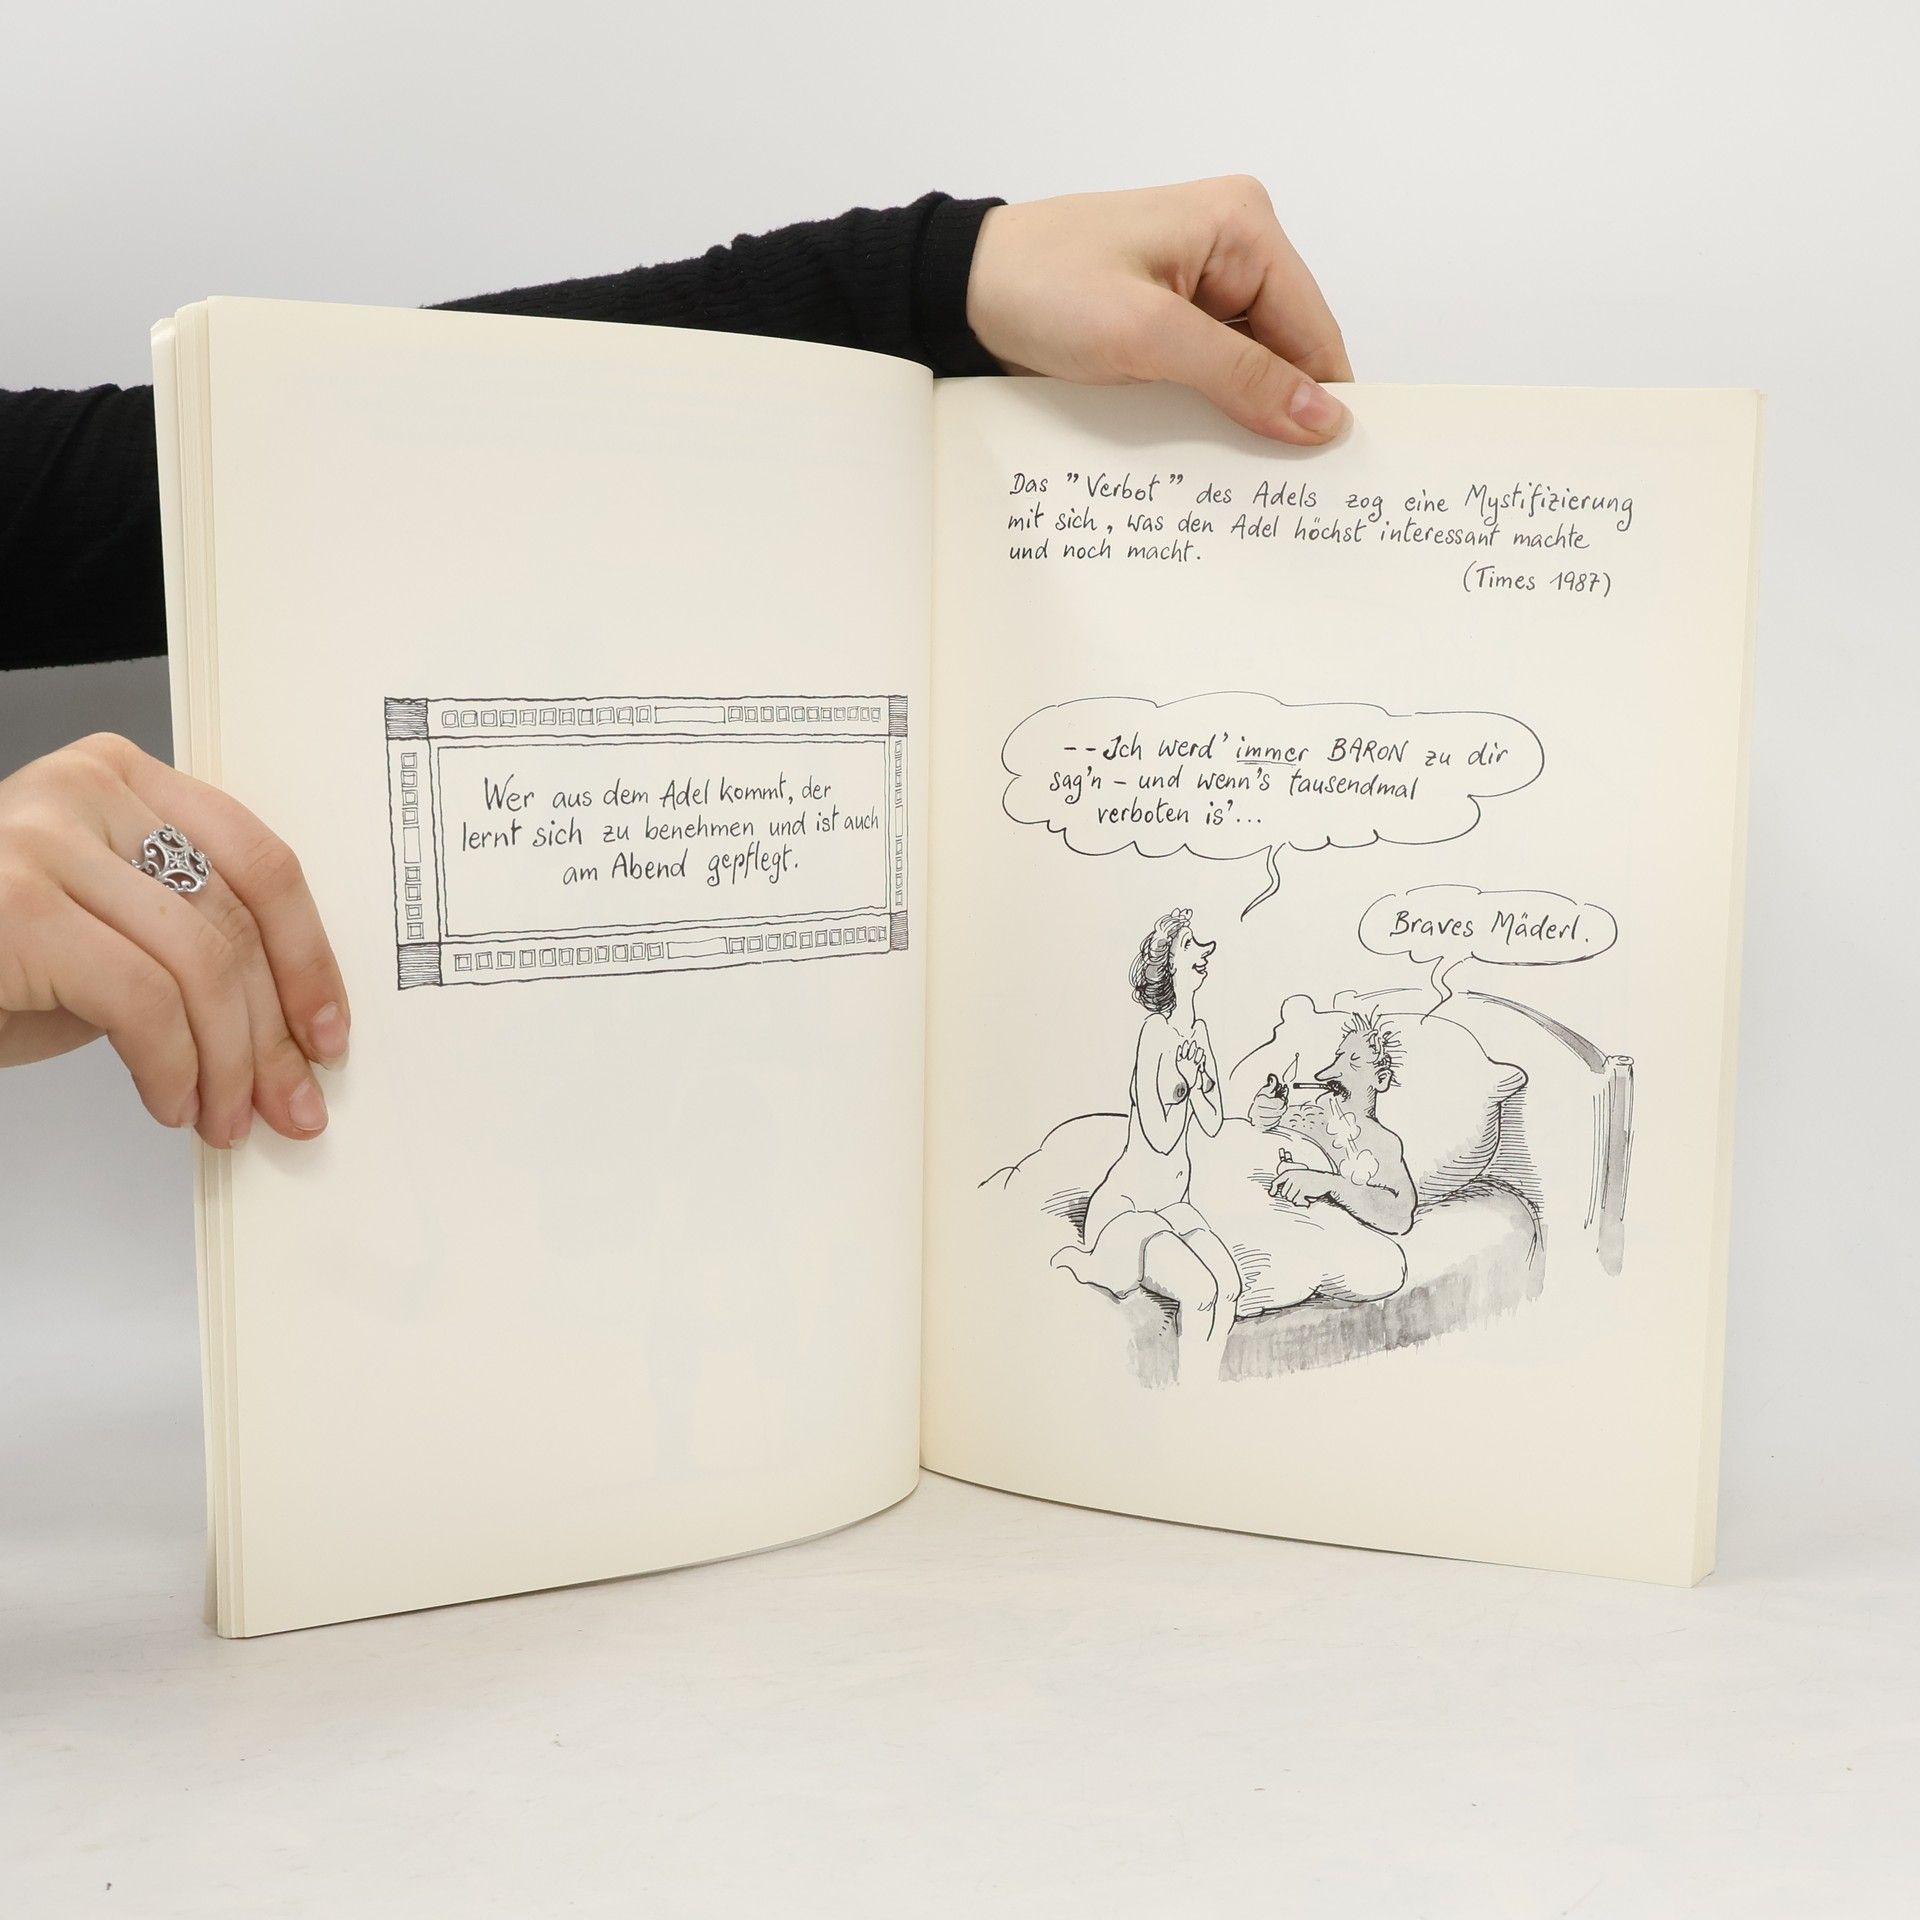 Wer aus dem Adel kommt, der
lernt sich zu benehmen und ist auch
am Abend gepflegt.
Das "Verbot" des Adels zog eine Mystifizierung
mit sich, was den Adel höchst interessant machte
und noch macht.
(Times 1987)
--Ich werd' immer BARON zu dir
sag'n - und wenn's tausendmal
verboten is'...
Braves Mäderl.